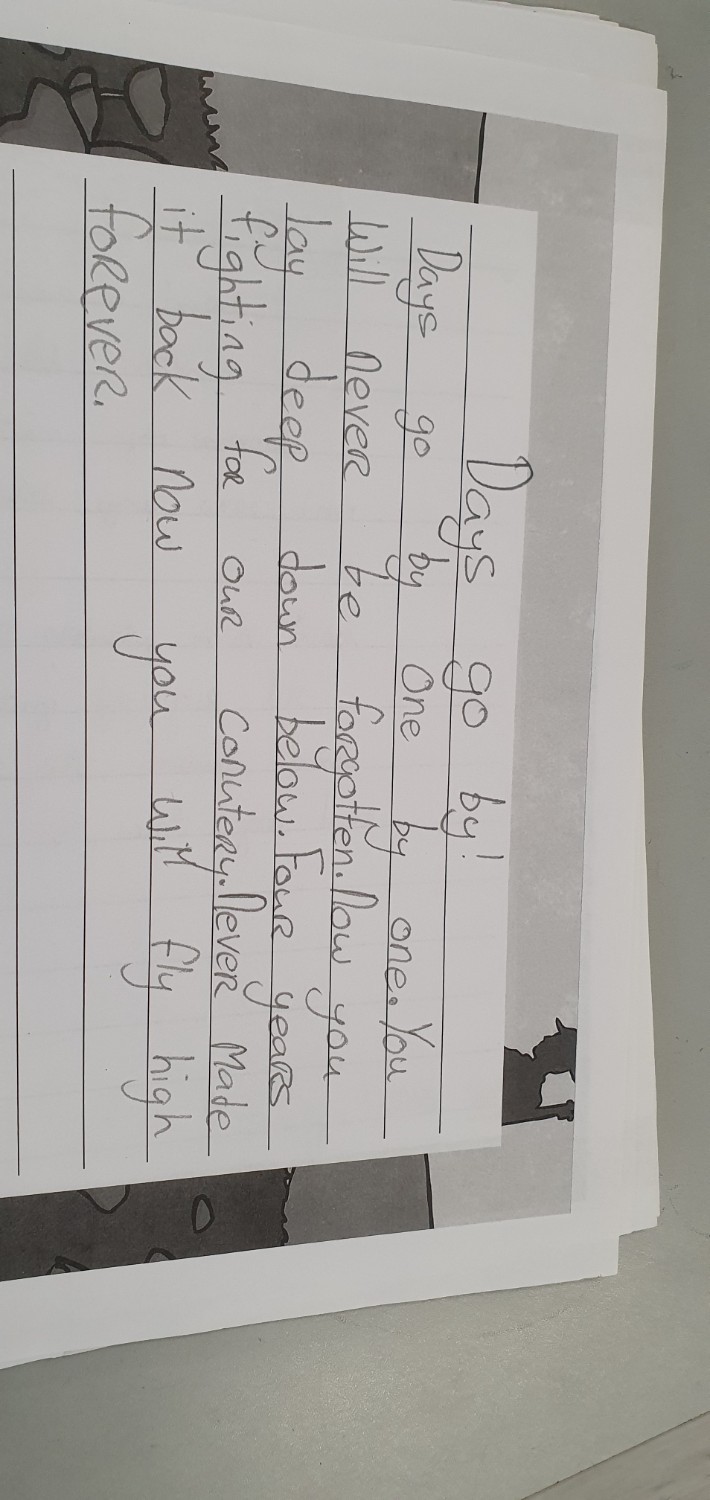 Days go by!
Days go by One by one. You
Will never be forgotten. Now you
lay deep down below. Four years
fighting for our conutery. Never Made
it back now you will fly high
forever.